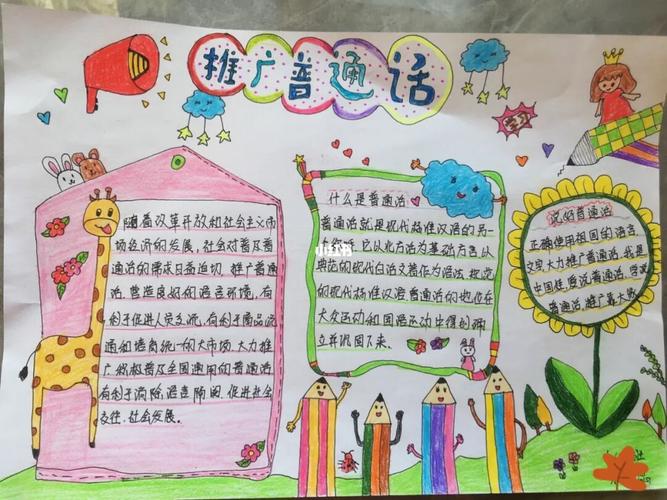 推广普通话
随着改革开放和社会主义市
场经济的发展,社会对普及普
通话的需求日益迫切。推广普通
话,营造良好的语言环境,有
利于促进人员交流,有利于商品流
通和培育统一的大市场。大力推
广积极普及全国通用的普通话
有利于消除语言隔阂,促进社会
交往,社会发展。
什么是普通话?
普通话就是现代标准汉语的另一
个称呼,它以北方话为基础方言,以
典范的现代白话文著作为语法规范
的现代标准汉语。普通话的地位在
大众运动和国语运动中得到确
立并巩固下来。
小红书
说好普通话
正确使用祖国的语言
文字大力推广普通话,我是
中国娃,爱说普通话
普通话,推广靠大家